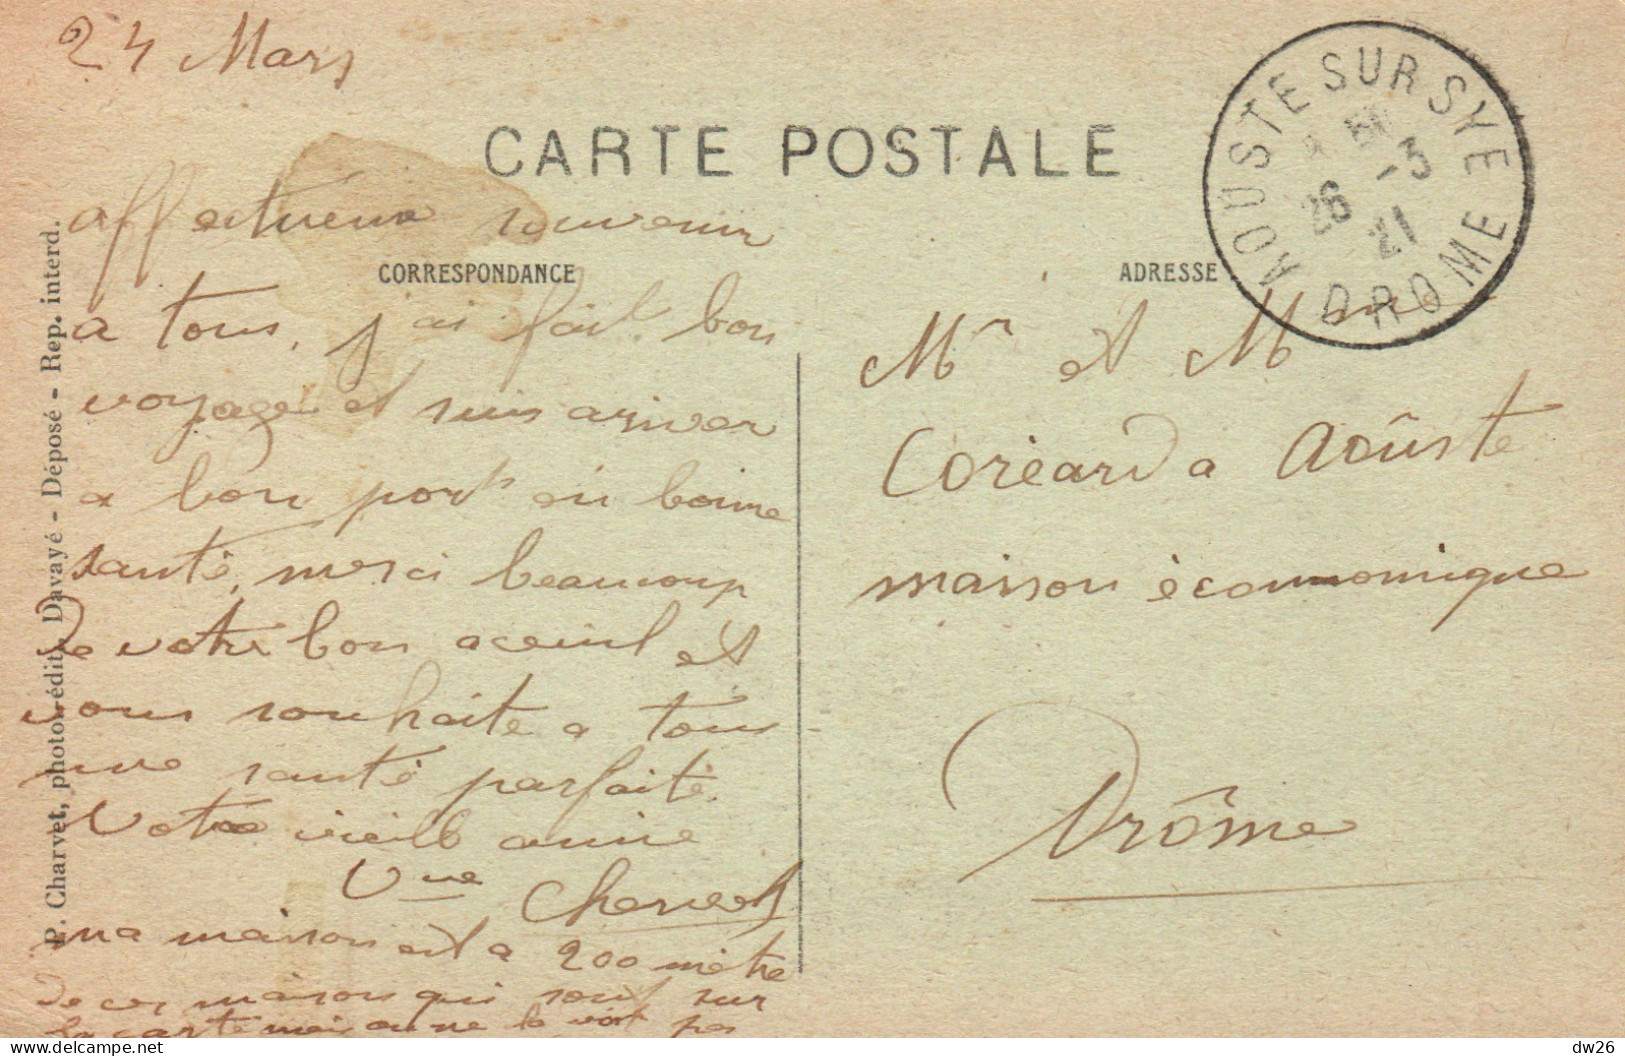 24 Mars
CARTE POSTALE
AOUSTE SUR SYE
26 -3
21
DROME
CORRESPONDANCE
ADRESSE
affectueux souvenir
a tous, j'ai fait bon
voyage et suis ariver
a bon port en bonne
santé, merci beaucoup
De votre bon aceuil et
vous souhaite a tous
une santé parfaite
Votre vieille amie
Vve
ma maison est a 200 mètre
De ces maison qui sont sur
la carte mais on ne la voit pas
Mr et Mme
Coréard a Aoûste
maison économique
Drôme
P. Charvet, photo.-édit., Davayé - Déposé - Rep. interd.
dw26